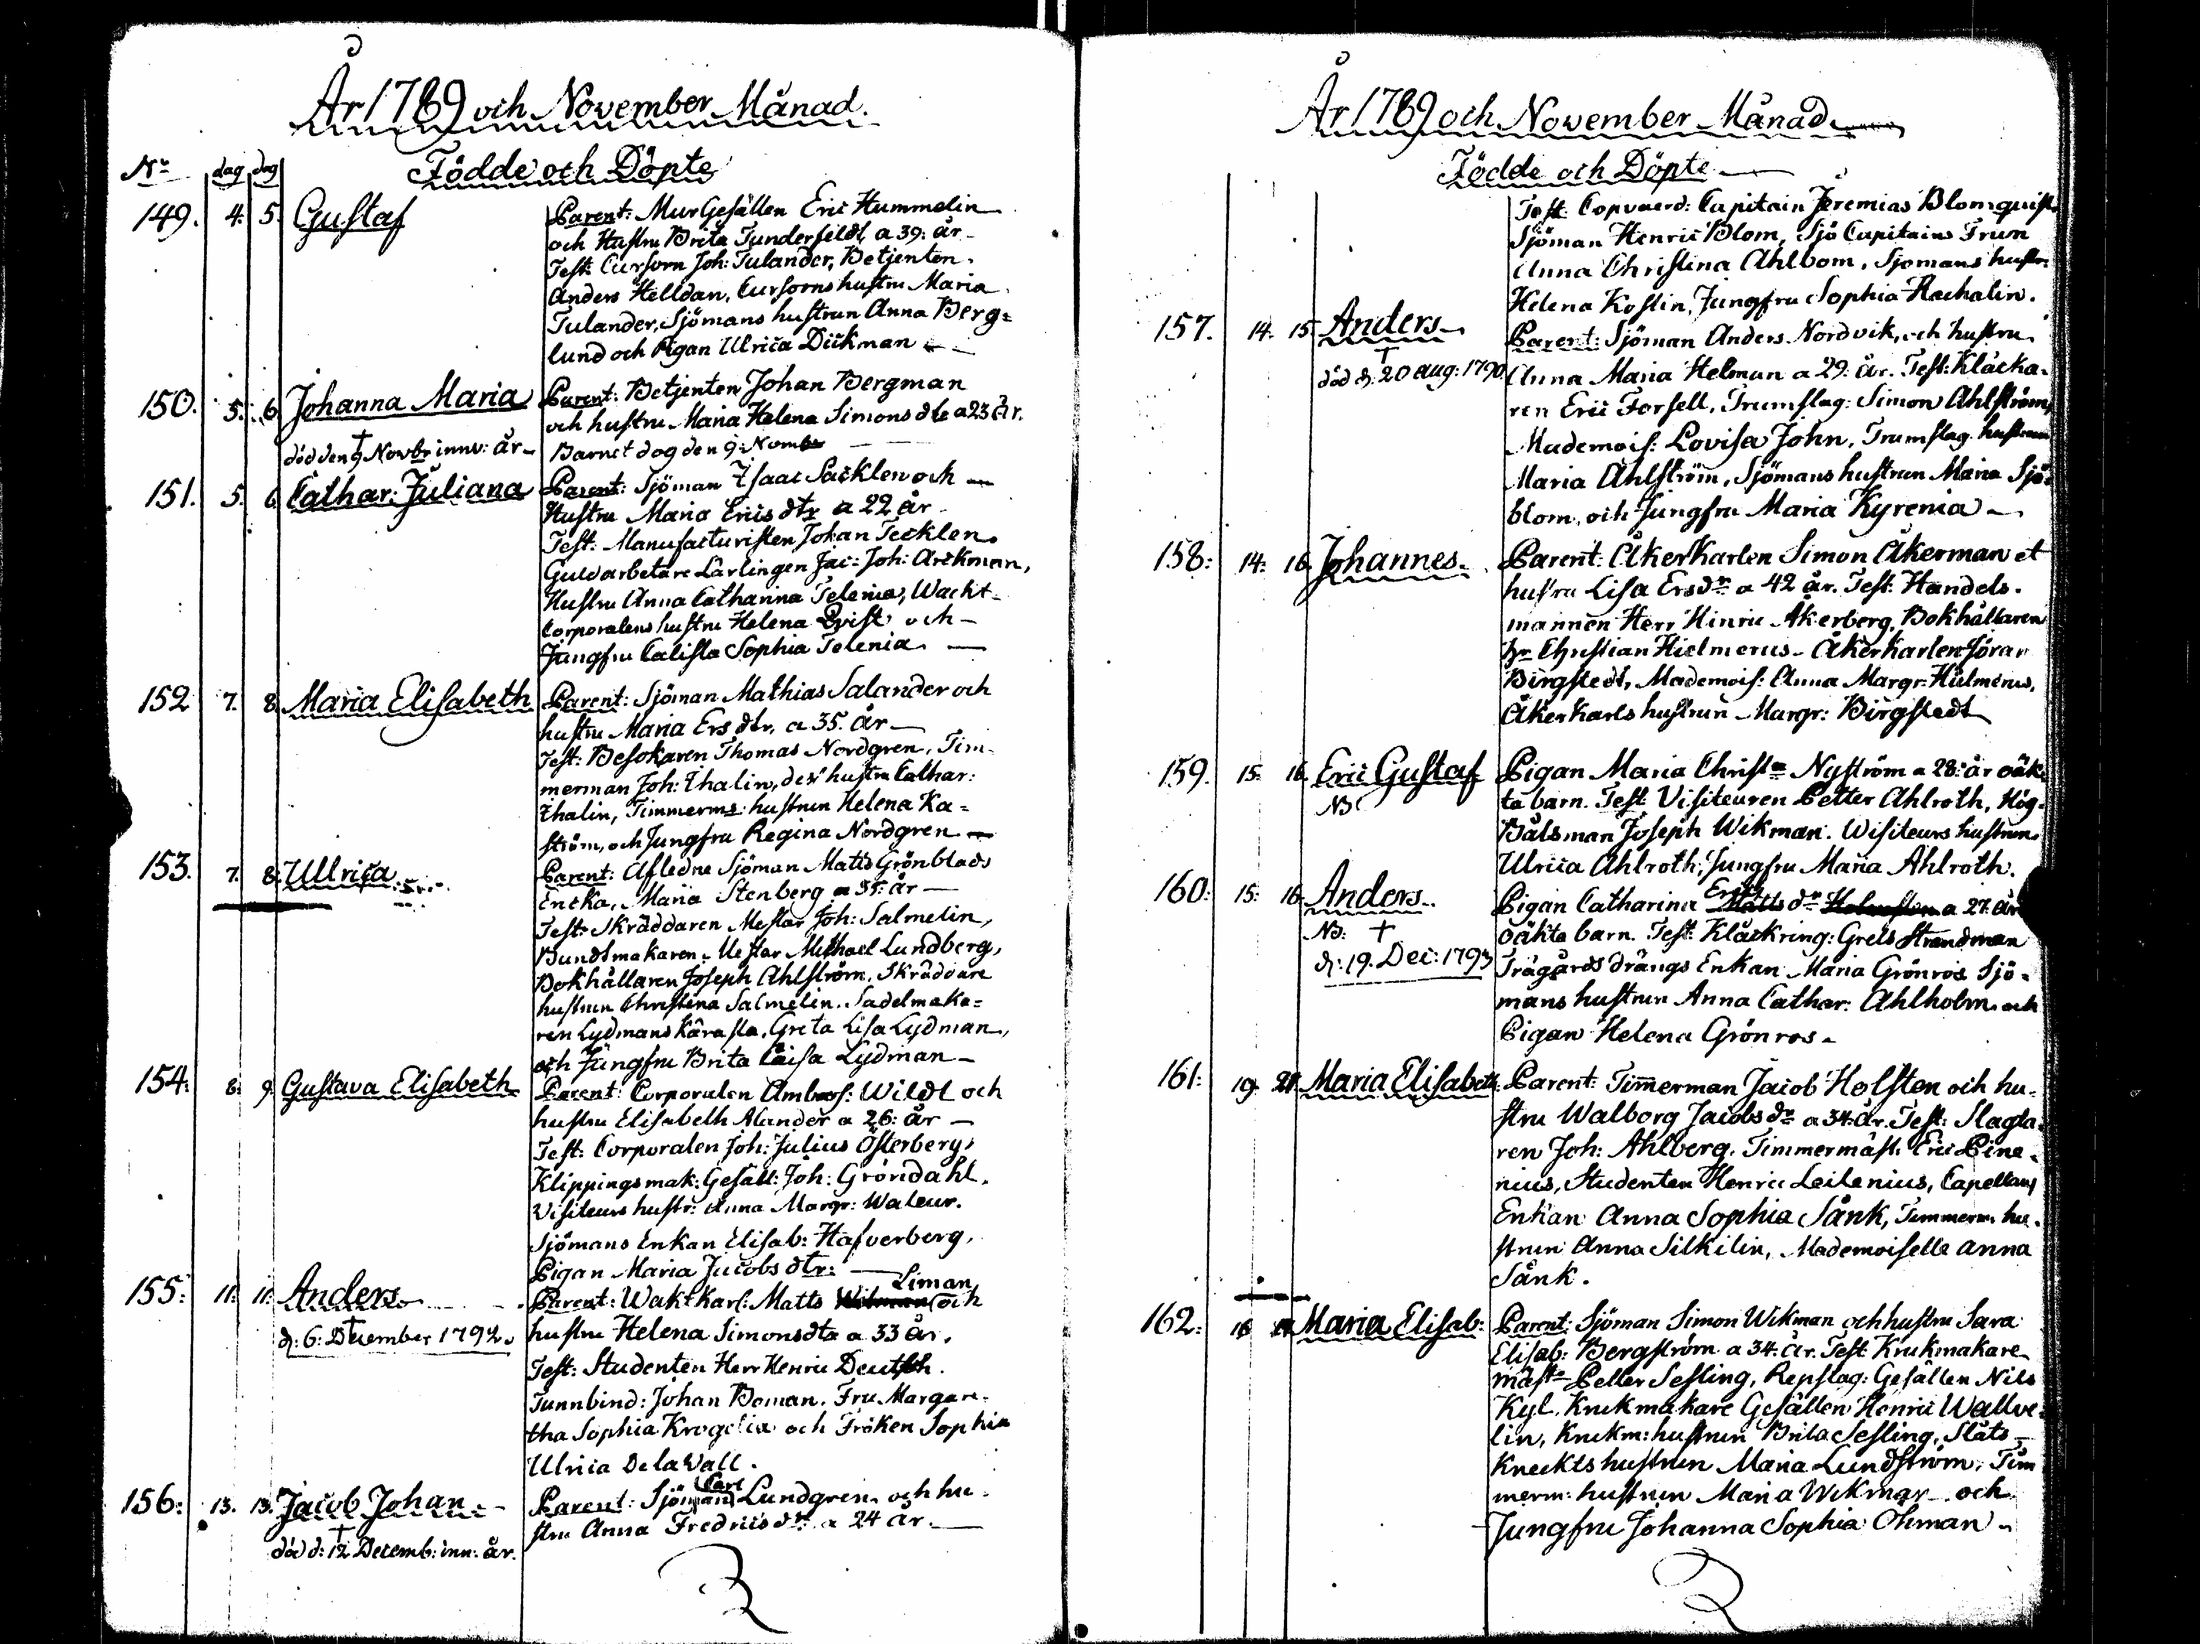 År 1789 och November Månad.
Födde och Döpte
No dag dag
149. 4. 5. Gustaf Parent: MurGesällen Eric Hummelin
och Hustru Brita Tunderfeldt a 39: år
Test: Cursorn Joh: Tulander, Betjenten
Anders Helldan, Cursorns hustru Maria
Tulander, Sjömans hustrun Anna Berg=
lund och Pigan Ulrica Dickman
150. 5. 6. Johanna Maria Parent: Betjenten Johan Bergman
och hustru Maria Helena Simons dtr a 23 År.
död den 9 Novbr innv: år Barnet dog den 9: Novembr
151. 5. 6. Cathar: Juliana Parent: Sjöman Isaac Sacklen och
Hustru Maria Erics dtr a 22 år
Test: Manufacturisten Johan Tecklen.
Guldarbetare Lärlingen Jac: Joh: Arckman,
Hustru Anna Catharina Telenia, Wackt-
Corporalens hustru Helena Qvist och
Jungfru Calista Sophia Telenia
152 7. 8. Maria Elisabeth Parent: Sjöman Mathias Salander och
hustru Maria Ers dtr. a 35. år
Test: Besökaren Thomas Nordgren, Tim-
merman Joh: Thalin, des hustru Cathar:
Thalin, Timmerms: hustrun Helena Ka=
ström, och Jungfru Regina Nordgren
153. 7. 8. Ullrica Parent: Afledne Sjöman Matts Grönblads
Encka, Maria Stenberg a 35: år
Test: Skräddaren Mestar Joh: Salmelin,
Bundtmakaren Mestar Michael Lundberg,
Bokhållaren Joseph Ahlström. Skräddare
hustrun Christina Salmelin. Sadelmaka=
ren Lydmans Kärasta, Greta Lisa Lydman,
och Jungfru Brita Caisa Lydman
154: 8. 9. Gustava Elisabeth Parent: Corporalen Ambros: Wildt och
hustru Elisabeth Alander a 26: år
Test: Corporalen Joh: Julius Österberg,
Klippingsmak: Gesäll: Joh: Gröndahl.
Visiteurs hustr: Anna Margr: Waleur.
Sjömans Enkan Elisab: Hafverberg,
Pigan Maria Jacobs dtr:
Liman
155: 11: 11: Anders Parent: Wakt Karl: Matts och
d: 6: December 1792. hustru Helena Simonsdtr a 33 år.
Test: Studenten Herr Henric Deutsch.
Tunnbind: Johan Boman. Fru Margare-
tha Sophia Krogelia och Fröken Sophia
Ulrica De la Vall.
Carl
156: 13. 13. Jacob Johan Parent: Sjöman Lundgren och hu-
stru Anna Fredrics dr a 24 år.
död d: 12 Decemb: inn: år.
År 1789 och November Månad
Födde och Döpte
Test: Copvaerd: Capitain Jeremias Blomquist
Sjöman Henric Blom, Sjö Capitains Frun
Anna Christina Ahlbom, Sjömans hustr:
Helena Kostin, Jungfru Sophia Rachalin.
157. 14. 15. Anders Parent: Sjöman Anders Nordvik, och hustru
död d: 20 aug: 1790 Anna Maria Helman a 29: år. Test: Klåcka-
ren Eric Forsell, Trumslag: Simon Ahlström,
Mademois: Lovisa John, Trumslag: hustrun
Maria Ahlström, Sjömans hustrun Maria Sjö-
blom, och Jungfru Maria Kyrenia
158: 14: 16. Johannes Parent: ÅkerKarlen Simon Åkerman et
hustru Lisa Ersdr a 42 år. Test: Handels-
mannen Herr Hinric Åkerberg, Bokhållaren
hr Christian Hielmerus. Åkerkarlen Göran
Birgstedt, Mademois: Anna Margr: Hielmerus,
Åkerkarls hustrun Margr: Birgstedt
159. 15. 16. Eric Gustaf Pigan Maria Christna Nyström a 28: år oäk-
NB: ta barn. Test: Visiteuren Petter Ahlroth, Hög-
Båtsman Joseph Wikman. Wisiteurs hustrun
Ulrica Ahlroth, Jungfru Maria Ahlroth.
Erics
160: 15: 16. Anders Pigan Catharina Matts dr a 27. år
NB: oäkta barn. Test: Klåckring: Grels Strandman
d: 19. Dec: 1793 Trägårds drängs Enkan Maria Grönros Sjö-
mans hustrun Anna Cathar: Ahlholm och
Pigan Helena Grönros
161: 19. 21. Maria Elisabeth Parent: Timmerman Jacob Holsten och hu-
stru Walborg Jacobs dr a 34: år. Test: Slagta-
ren Joh: Ahlberg. Timmermäst. Eric Pine-
nius, Studenten Henric Leilenius, Capellans
Enkan Anna Sophia Sånk, Timmerm. hu-
strun Anna Silkilin, Mademoiselle Anna
Sånk.
162: 18 Maria Elisab: Parent: Sjöman Simon Wikman och hustru Sara
Elisab: Bergström a 34: år. Test: Krukmakare
mäst Petter Sesling, Repslag: Gesällen Nils
Kyl. Krukmakare Gesällen Henric Wallve-
lin, Krukm: hustrun Brita Sesling, Slåts-
Kneckts hustrun Maria Lundström, Tim
merm: hustrun Maria Wikman och
Jungfru Johanna Sophia Öhman